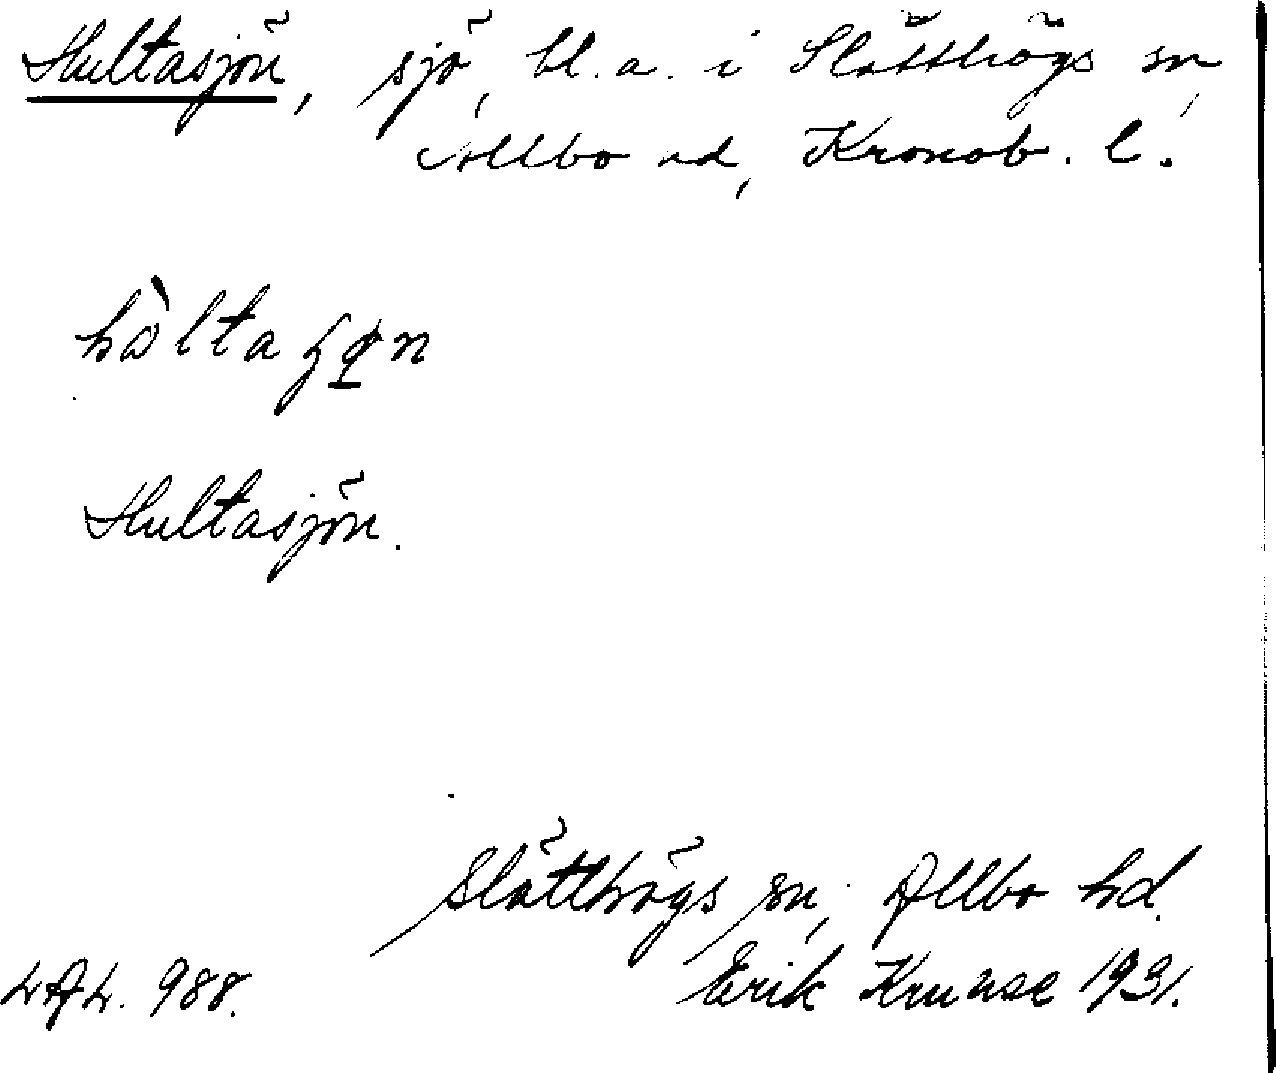 Hultasjön, sjö, bl.a. i Slätthögs sn,
Allbo hd, Kronob. l.
hòlta ɧø̠n
Hultasjön.
Slätthögs sn, Allbo hd.
LAL. 988. Erik Kruuse 1931.